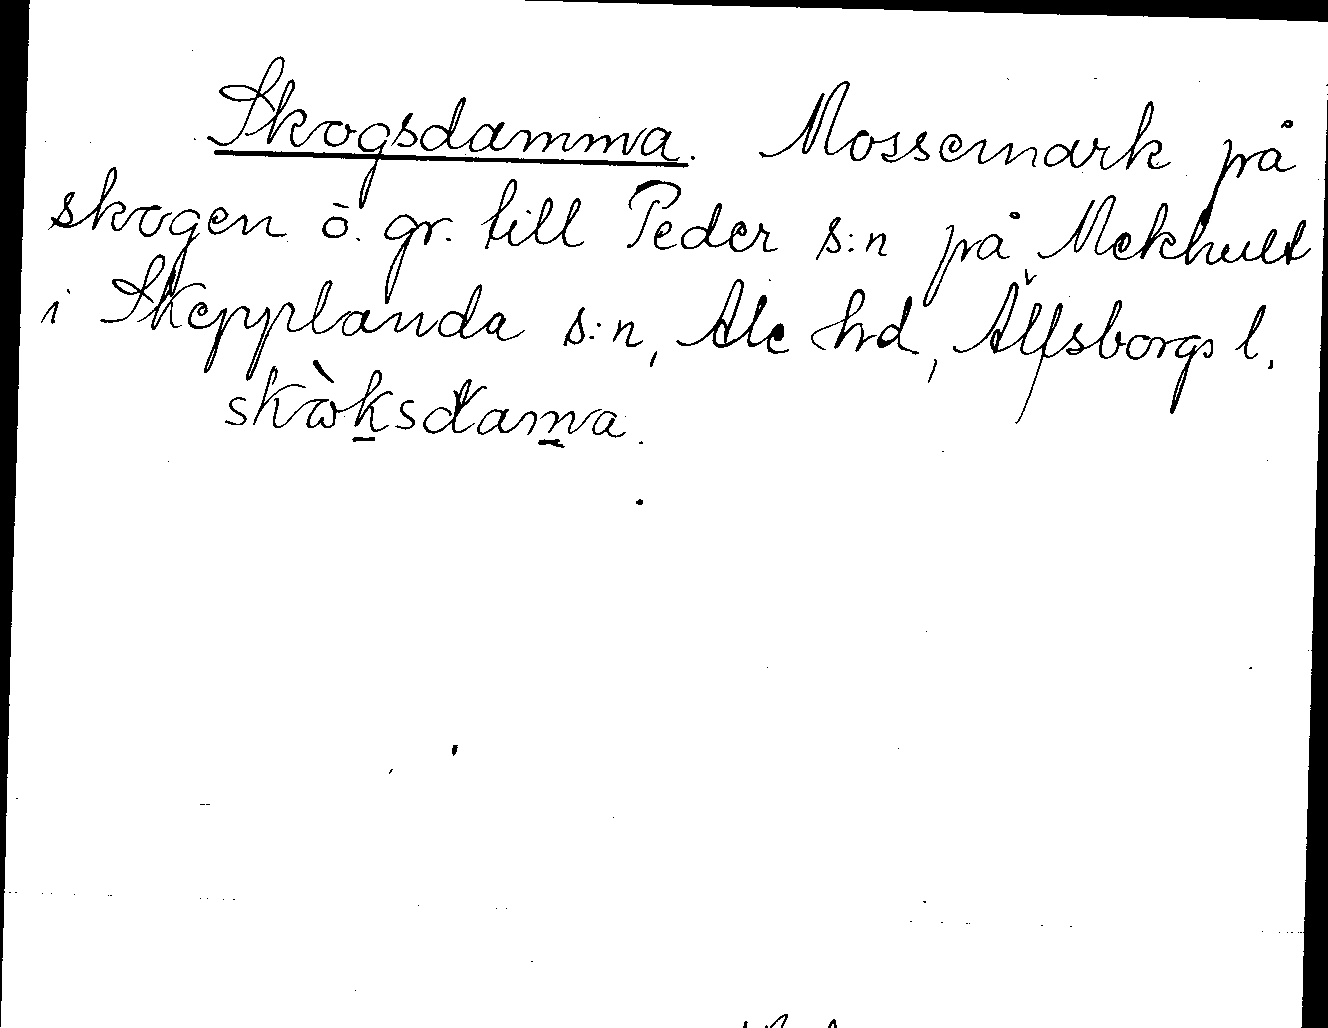 Skogsdamma. Mossemark på
skogen ö. gr. till Peder s:n på Mekhult
i Skepplanda s:n, Ale hd, Älfsborgs l.
skὼksdama.